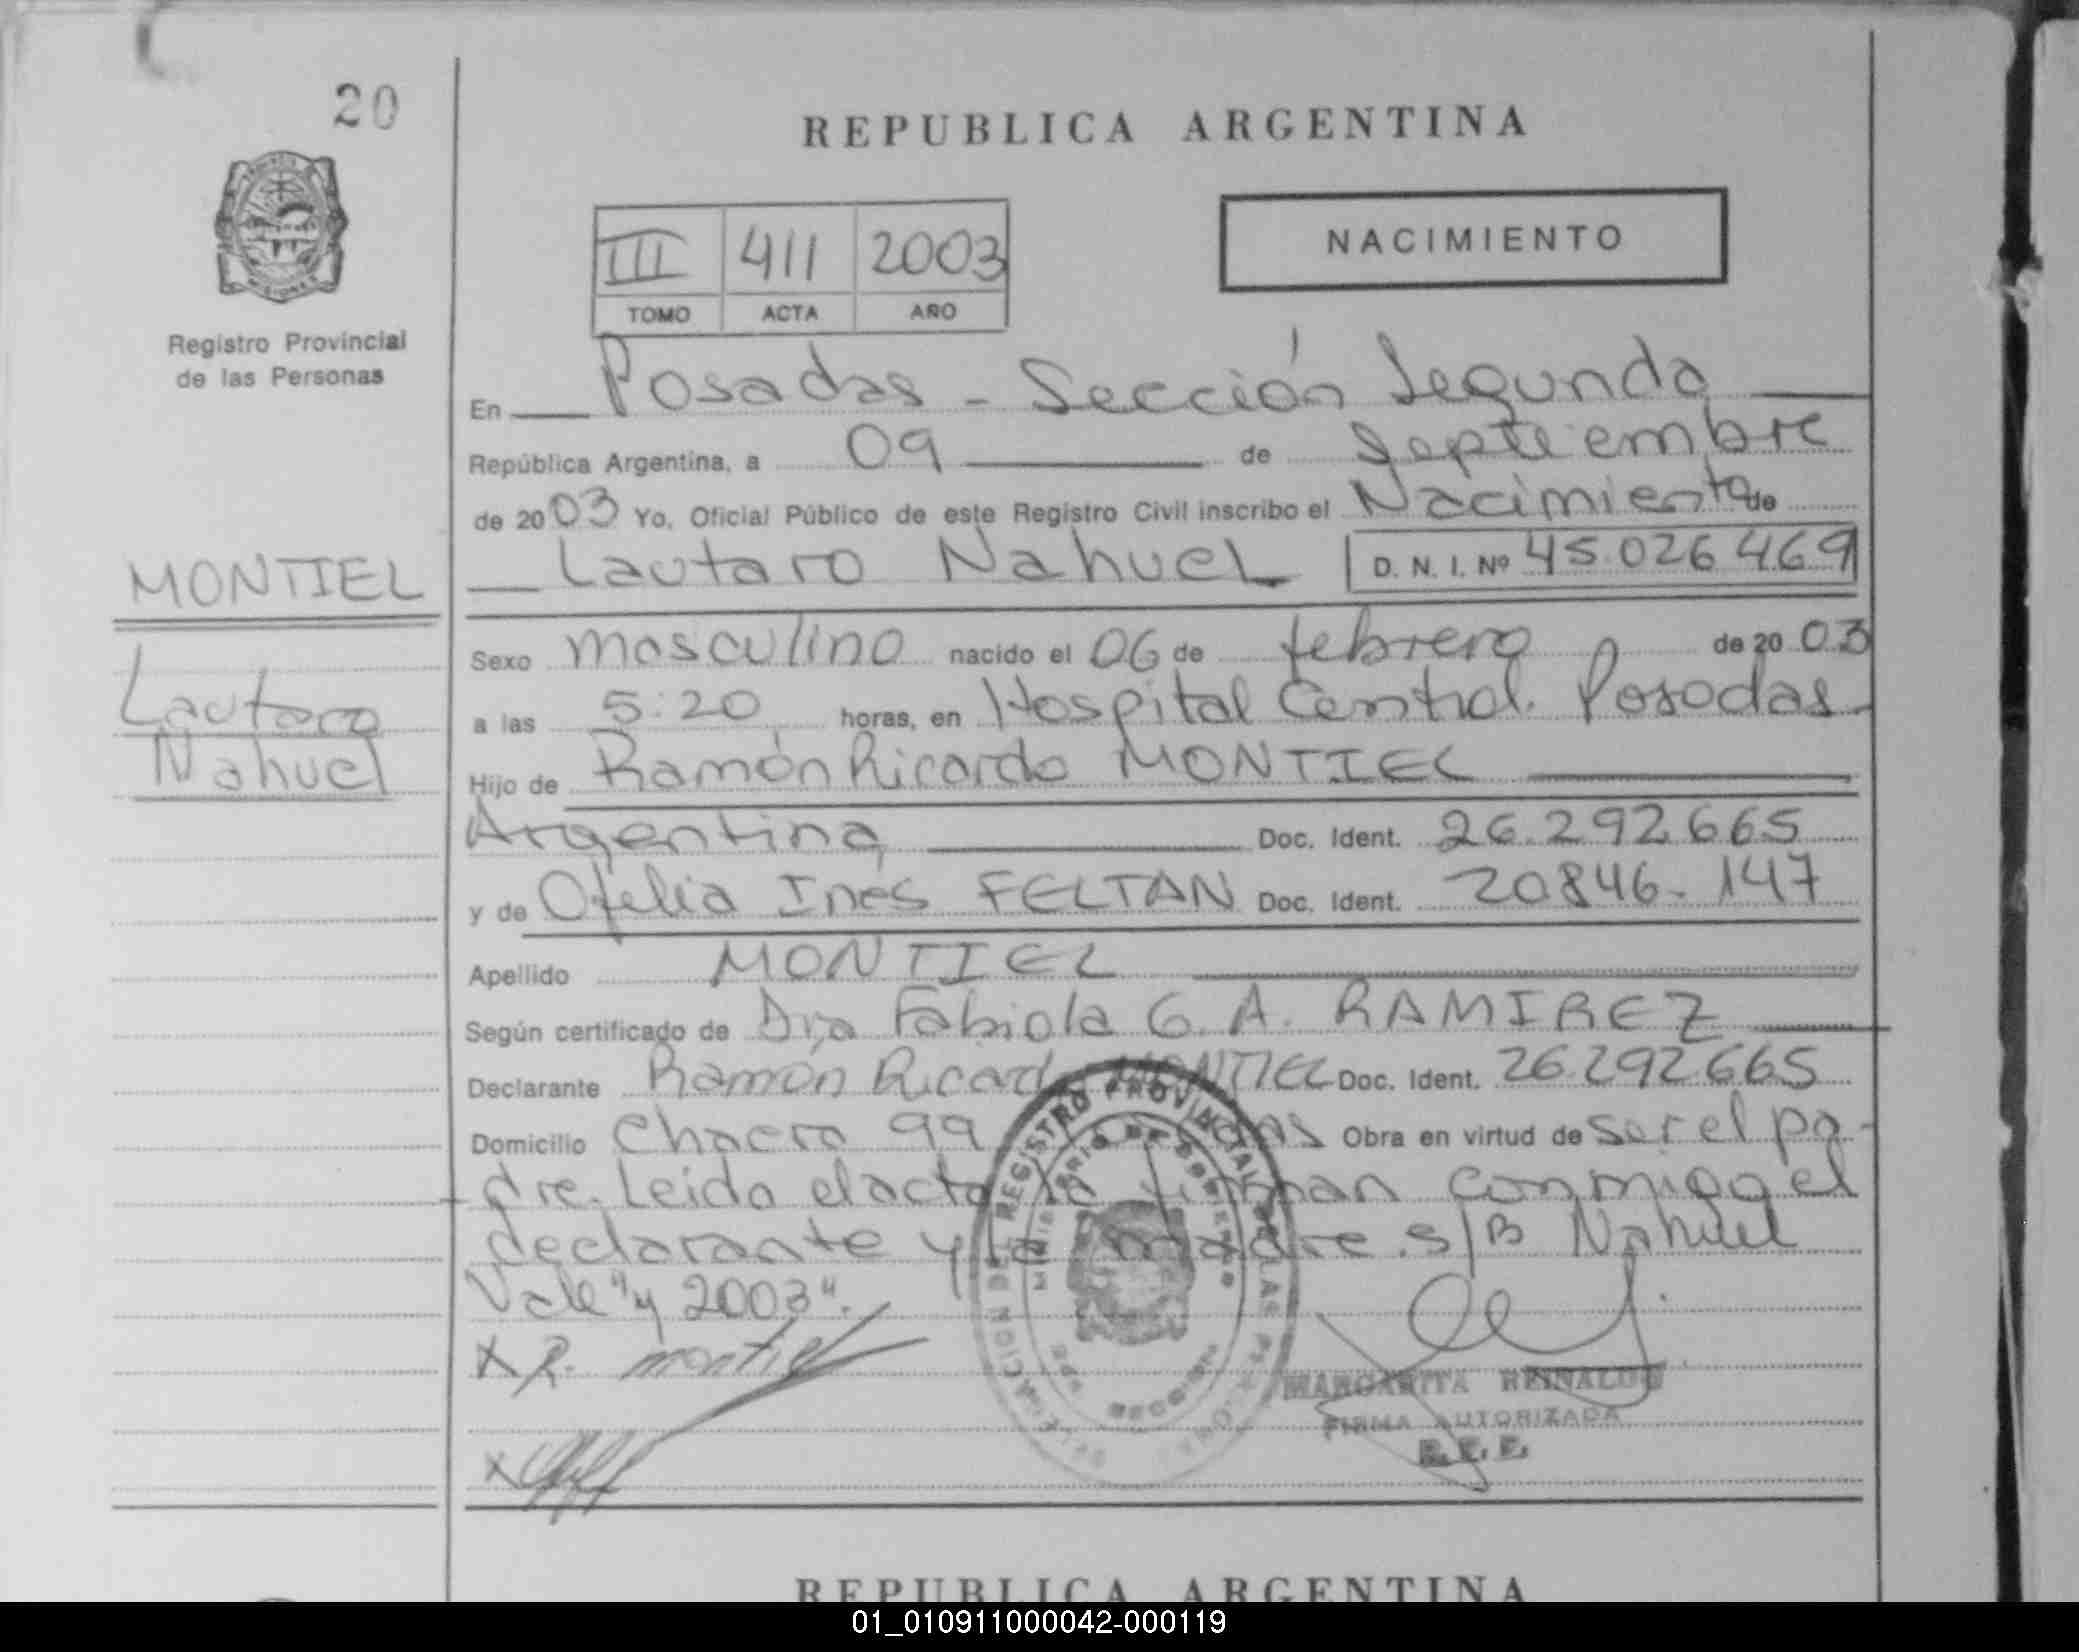 20
REPUBLICA ARGENTINA
NACIMIENTO
III 411 2003
TOMO ACTA AÑO
Registro Provincial
de las Personas
En Posadas - Sección Segunda
República Argentina, a 09 de Septiembre
de 2003 Yo, Oficial Público de este Registro Civil inscribo el Nacimiento de
Lautaro Nahuel D. N. I. Nº 45.026.469
MONTIEL
Lautaro
Nahuel
Sexo masculino nacido el 06 de febrero de 2003
a las 5:20 horas, en Hospital Central. Posadas
Hijo de Ramón Ricardo MONTIEL
Argentina Doc. Ident. 26.292.665
y de Ofelia Inés FELTAN Doc. Ident. 20846.147
Apellido MONTIEL
Según certificado de Dra Fabiola G. A. RAMIREZ
Declarante Ramón Ricardo MONTIEL Doc. Ident. 26.292.665
Domicilio Chacra 99 Obra en virtud de ser el pa-
dre. Leida el acta la firman conmigo el
declarante y la madre. s/B Nahuel
Vale "y 2003".
X R. montiel
X
MARGARITA REINALDO
FIRMA AUTORIZADA
REGISTRO PROVINCIAL DE LAS PERSONAS
MINISTERIO DE GOBIERNO
REPUBLICA ARGENTINA
01_010911000042-000119